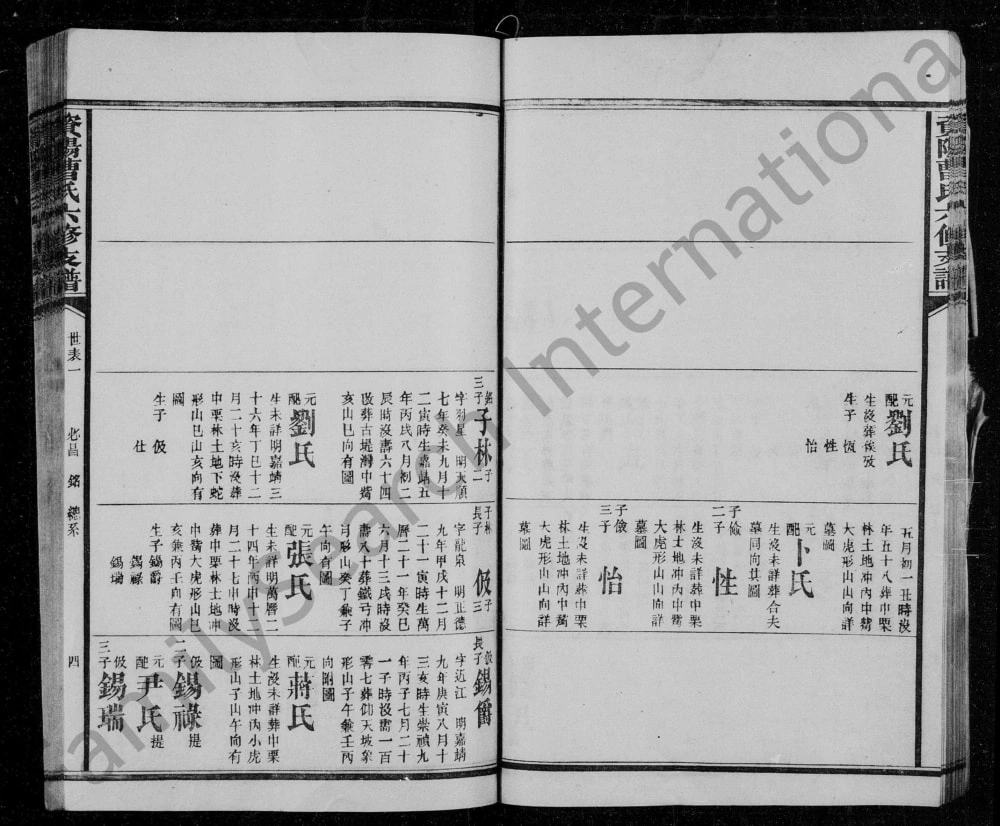 資陽曹氏六修支譜
元配
劉氏
生沒葬俟攷
生子 恆
性
怡
五月初一丑時沒
年五十八葬中栗
林土地冲內中嘴
大虎形山山向詳
墓圖
元配
卜氏
生沒未詳葬合夫
墓同向具圖
子儉二子
性
生沒未詳葬中栗
林土地冲內中嘴
大虎形山山向詳
墓圖
子儉三子
怡
生沒未詳葬中栗
林土地冲內中嘴
大虎形山山向詳
墓圖
銘三子
子林 子二
字羽星 明天順
七年癸未九月十
二寅時生嘉靖五
年丙戌八月初二
辰時沒壽六十四
改葬古堤灣中嘴
亥山巳向有圖
元配
劉氏
生未詳明嘉靖三
十六年丁巳十二
月二十亥時沒葬
中栗林土地下蛇
形山巳山亥向有
圖
生子 伋
仕
子林長子
伋 子三
字龍泉 明正德
九年甲戌十二月
二十一寅時生萬
曆二十一年癸巳
六月十三戌時沒
壽八十葬鐵弓冲
弓形山癸丁兼子
午向有圖
元配
張氏
生未詳明萬曆二
十四年丙申十二
月二十七申時沒
葬中栗林土地冲
中嘴大虎形山巳
亥兼丙壬向有圖
生子錫爵
錫祿
錫瑞
伋長子
錫爵
字近江 明嘉靖
九年庚寅八月十
三亥時生崇禎九
年丙子七月二十
一子時沒壽一百
零七葬仰天坡象
形山子午兼壬丙
向附圖
元配
蔣氏
生沒未詳葬中栗
林土地冲內小虎
形山子山午向有
圖
伋二子
錫祿 提
元配
尹氏 提
伋三子
錫瑞
資陽曹氏六修支譜
世表一
必昌 銘 總系
四
FamilySearch International